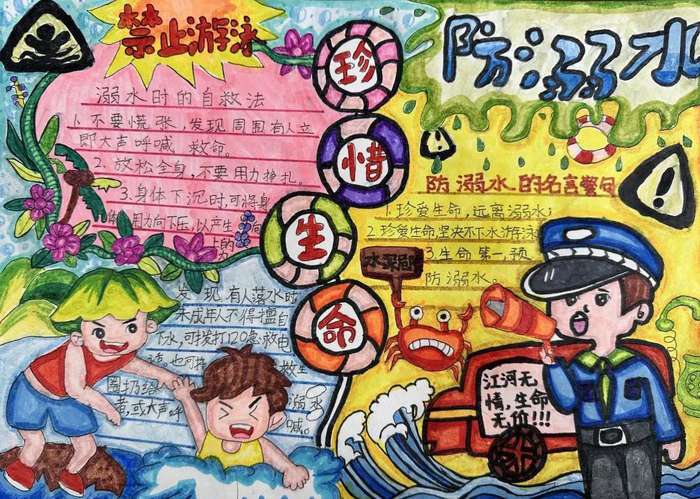 禁止游泳
溺水时的自救法
1.不要慌张,发现周围有人立
即大声呼喊 救命。
2.放松全身,不要用力挣扎。
3.身体下沉时,可将身
用力向下压,以产生 向
上的
珍
惜
生
命
防溺水
防溺水的名言警句
1.珍爱生命,远离溺水;
2.珍爱生命,坚决不下水游泳
3.生命第一,预
防溺水。
水深危
发现有人落水时
未成年人不得擅自
下水,可拨打120急救电
话,也可将 救生
圈扔给 溺水
者,或大声呼 喊。
江河无
情,生命
无价!!!